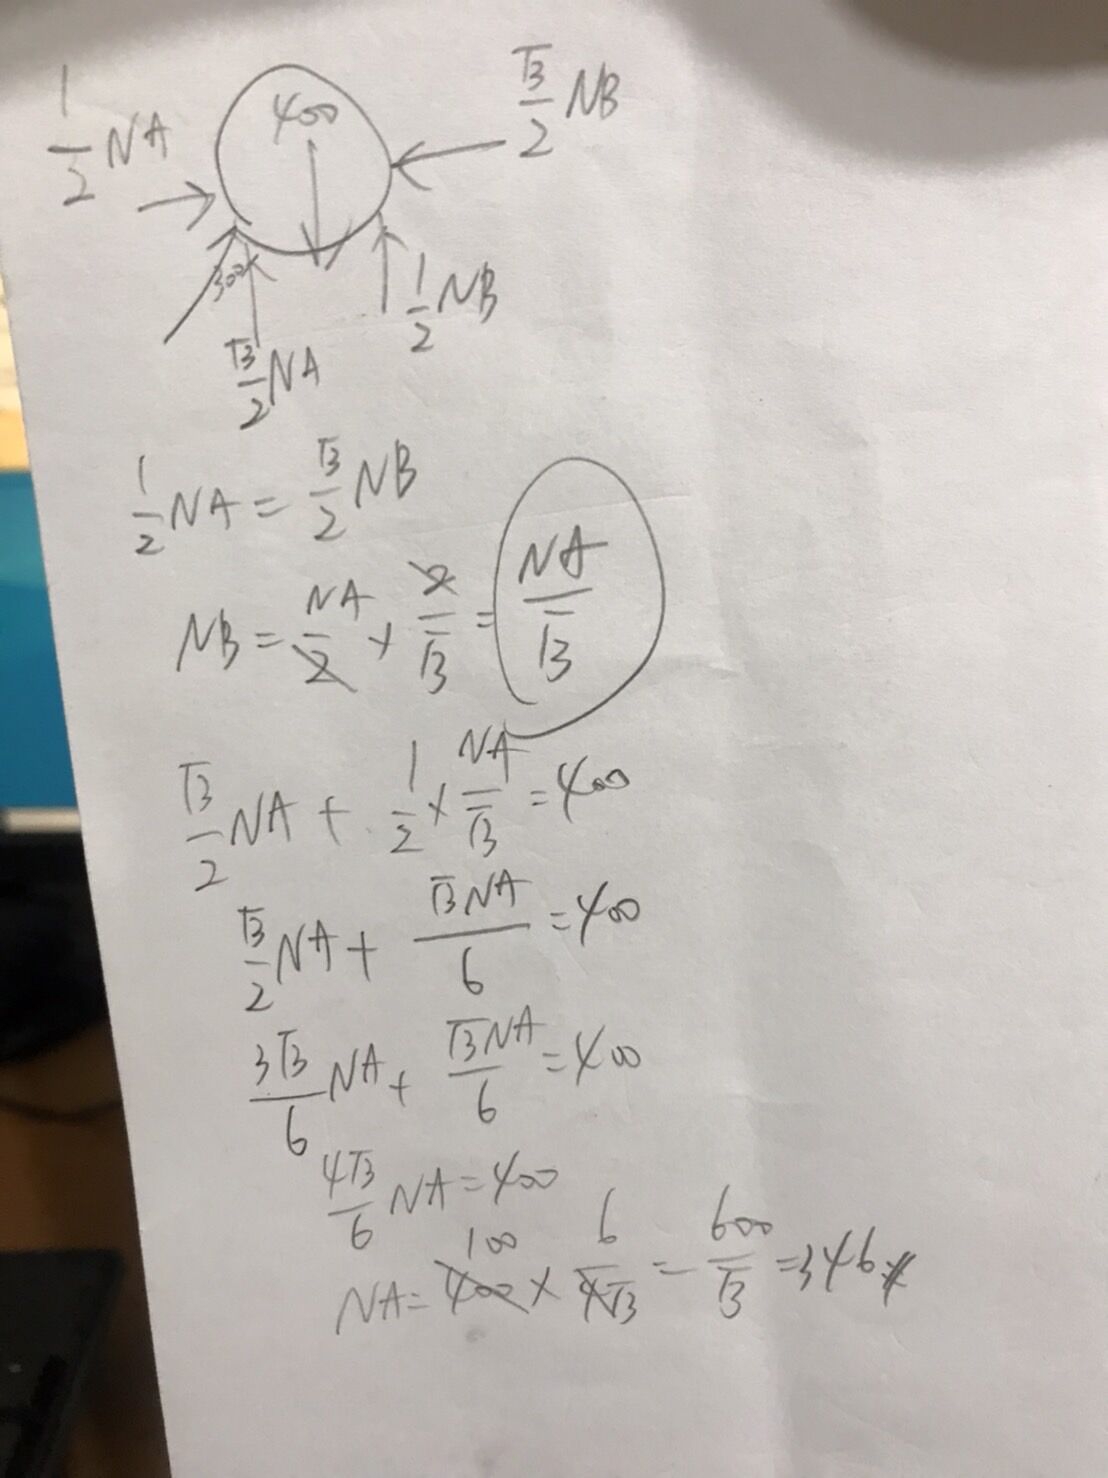 1/2 NA
400
√3/2 NB
30°
1/2 NB
√3/2 NA
1/2 NA = √3/2 NB
NB = NA/2 × 2/√3 = NA/√3
√3/2 NA + 1/2 × NA/√3 = 400
√3/2 NA + √3NA/6 = 400
3√3/6 NA + √3NA/6 = 400
4√3/6 NA = 400
100
NA = 400 × 6/4√3 = 600/√3 = 346